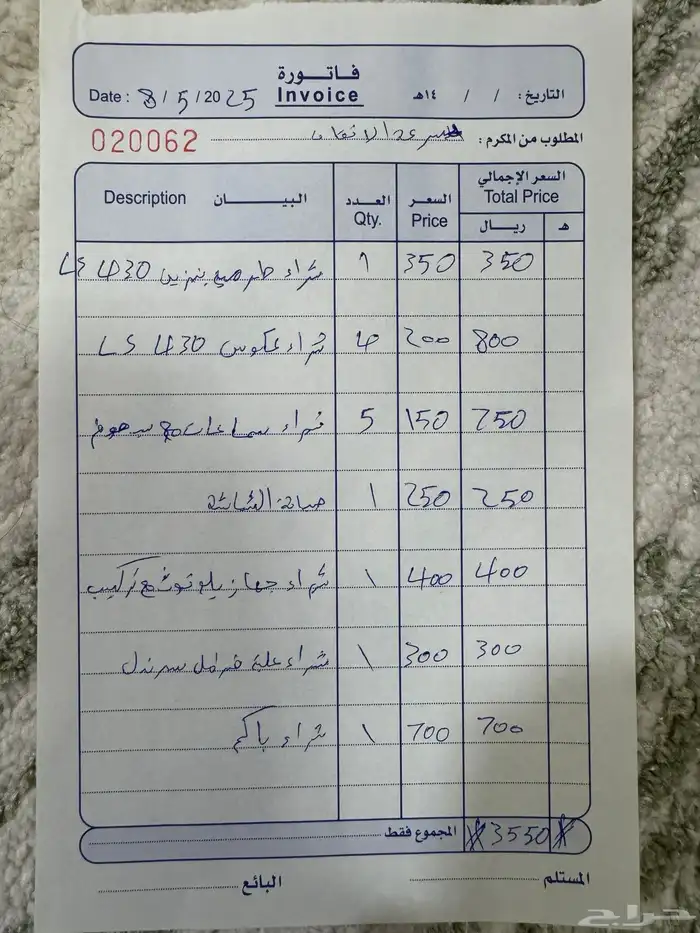 فاتورة
Date : 8 / 5 / 2025 Invoice التاريخ : / / ١٤هـ
020062 المطلوب من المكرم :
Description البيان العدد Qty. السعر Price السعر الإجمالي Total Price
ريال هـ
شراء بنزين LS 430 1 350 350
شراء عكوس LS 430 4 200 800
شراء سماعات مع 5 150 750
صيانة الشاشة 1 250 250
شراء جهاز بلوتوث مع تركيب ١ 400 400
شراء علبة فرامل سرندل ١ 300 300
شراء باكم ١ 700 700
المجموع فقط #3550#
المستلم البائع
حراج